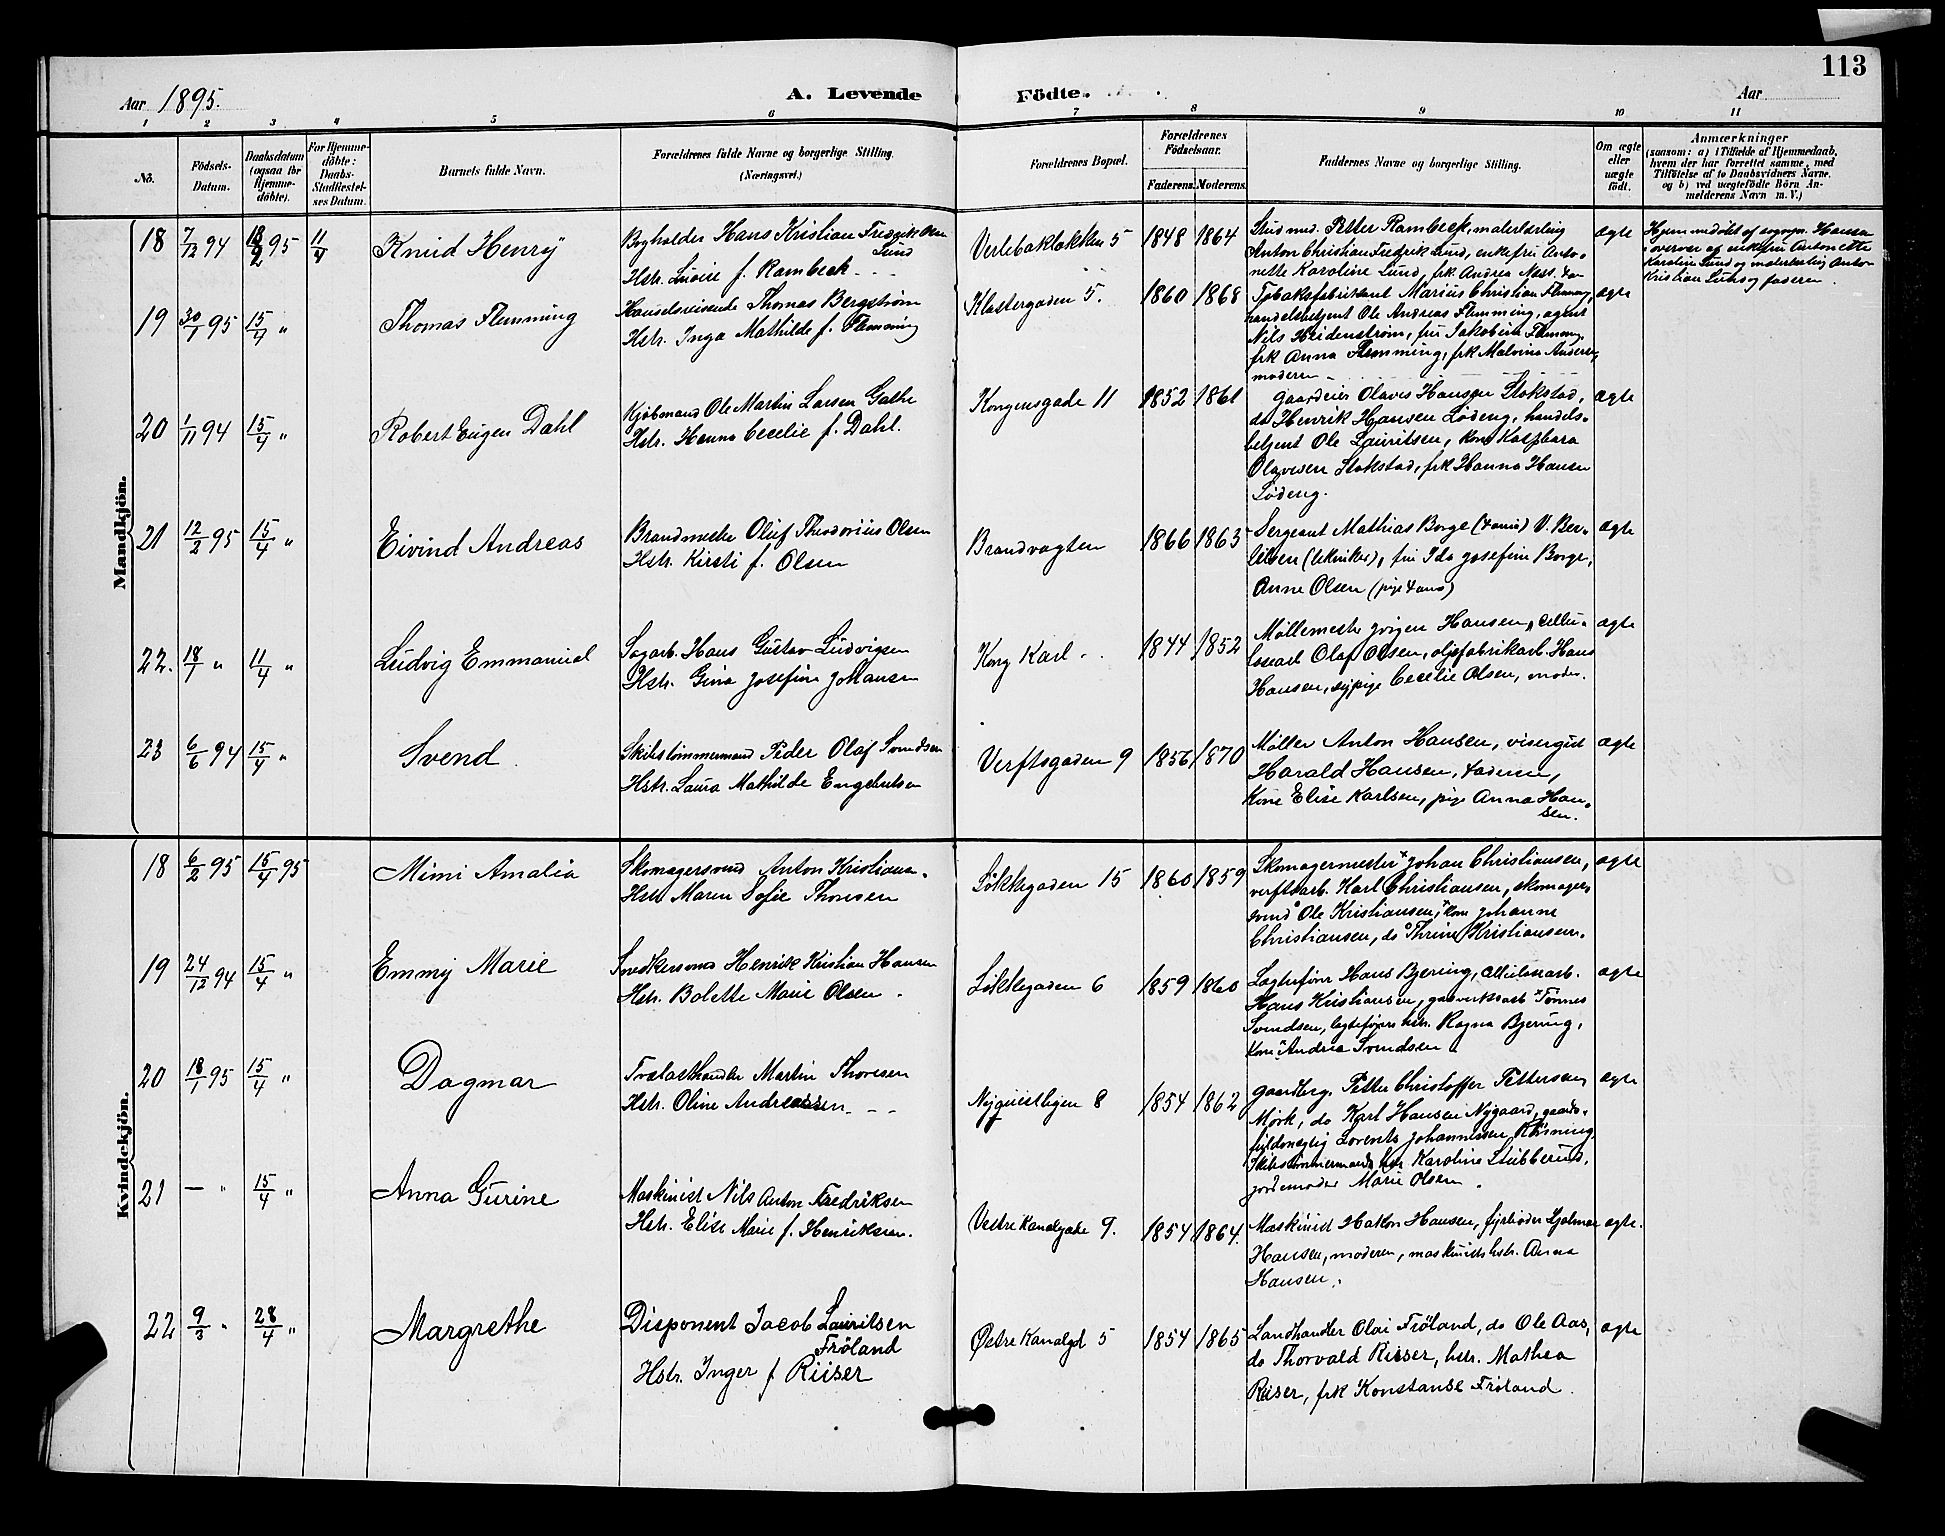 113
Aar 1895.
A. Levende Födte.
Aar
1 2 3 4 5 6 7 8 9 10 11
No.
Födsels-Datum.
Daabsdatum (ogsaa for Hjemme-döbte).
For Hjemme-döbte: Daabs-Stadfæstel-ses Datum.
Barnets fulde Navn.
Forældrenes fulde Navne og borgerlige Stilling.
(Næringsvei.)
Forældrenes Bopæl.
Forældrenes Födselsaar.
Faderens. Moderens.
Faddernes Navne og borgerlige Stilling.
Om ægte eller uægte födt.
Anmærkninger
(saasom: a) i Tilfælde af Hjemmedaab,
hvem der har forrettet samme, med
Tilföielse af to Daabsvidners Navne,
og b) ved uægtefödte Börn An-
melderens Navn m. V.)
Mandkjön.
18 7/12 94 18/2 95 11/4 Knud Henry
Bogholder Hans Kristian Fredrik
Lund
Hstr. Lovise f. Rambeck
Verlebakløkken 5 1848 1864
Stud med. Petter Rambeck, malerlærling
Anton Christian Fredrik Lund, enkefru Anto-
nette Karoline Lund, frk. Andrea Næss.
ægte
Hjemmedøbt af sogepr. Hansen
i overvær af enkefru Antonette
Karoline Lund og malerlærling Anton
Kristian Lund og faderen.
19 30/1 95 15/4 " Thomas Flemming
Handelsreisende Thomas Bergstrøm
Hstr. Inga Mathilde f. Flemming
Klostergaden 5. 1860 1868
Tobaksfabrikant Marius Christian Flemming,
handelsbetjent Ole Andreas Flemming, agent
Nils Heidenstrøm, fru Jakobine Flemming,
frk Anna Flemming, frk Malvina Andersen,
moderen
ægte
20 1/11 94 15/4 " Robert Eugen Dahl
Kjøbmand Ole Martin Larsen Gathe
Hstr. Hanna Cecelie f. Dahl.
Kongensgade 11 1852 1861
Gaardeier Olaves Hansen Stokstad,
do Henrik Hansen Lødeng, handels-
betjent Ole Lauritsen, kone Kaspara
Olavesen Stokstad, frk Hanna Hansen
Lødeng.
ægte
21 12/2 95 15/4 " Eivind Andreas
Brandmester Oluf Theodorius Olsen
Hstr. Kirsti f. Olsen
Brandvagten 1866 1863
Sergeant Mathias Borge V. Ber-
telsen (tekniker), fru Ida Josefine Borge,
Anne Olsen
ægte
22. 18/1 " 11/4 " Ludvig Emmanuel
Sagarb. Hans Gustav Ludvigsen
Hstr. Gina Josefine Johansen
Kong Karl 1844 1852
Møllemester Jørgen Hansen, cellu-
losearb Olaf Olsen, oljefabrikarb. Hans
Hansen, sypige Cecelie Olsen, moder.
ægte
23 6/6 94 15/4 " Svend
Skibstømmermand Peder Olaf Svendsen
Hstr. Laura Mathilde Engebretsen
Verftsgaden 9 1856 1870
Møller Anton Hansen, visergut
Harald Hansen, faderen,
Kone Elise Karlsen, pige Anna Han-
sen.
ægte
Kvindekjön.
18 6/2 95 15/4 95 Mimi Amalia
Skomagersvend Anton Kristiansen
Hstr Maren Sofie Thoresen
Løkkegaden 15 1860 1859
Skomagermester Johan Christiansen,
verftsarb. Karl Christiansen, skomager-
svend Ole Kristiansen, kone Johanne
Christiansen, do Thrine Kristiansen.
ægte
19 24/12 94 15/4 " Emmy Marie
Snedkersvend Henrik Kristian Hansen
Hstr. Bolette Marie Olsen
Løkkegaden 6 1859 1860
Lagtefører Hans Bjering,
Hans Kristiansen, gasverksarb Tønnes
Svendsen, lagteførers hstr. Ragna Bjering,
kone Andrea Svendsen
ægte
20 18/1 95 15/4 " Dagmar
Trælasthandler Martin Thoresen
Hstr. Oline Andreassen
Nyquistbyen 8 1854 1862
Gaardbrg. Petter Christoffer Pettersen
Mørk, do Karl Hansen Nygaard, gaards-
fuldmægtig Lorents Johannessen
Skibstømmermands hstr Karoline Stubberud,
jordemoder Marie Olsen
ægte
21 – " 15/4 " Anna Gurine
Maskinist Nils Anton Fredriksen
Hstr. Elise Marie f. Henriksen.
Vestre Kanalgade 9. 1854 1864.
Maskinist Hakon Hansen, fyrbøder Hjalmar
Hansen, moderen, maskinists hstr. Anna
Hansen.
ægte.
22 9/3 " 28/4 " Margrethe
Disponent Jacob Lauritsen
Frøland
Hstr. Inger f Riiser
Østre Kanalgd 5 1854 1865
Landhandler Olai Frøland, do Ole Aas,
do Thorvald Riiser, hstr. Mathea
Riiser, frk Konstanse Frøland.
ægte